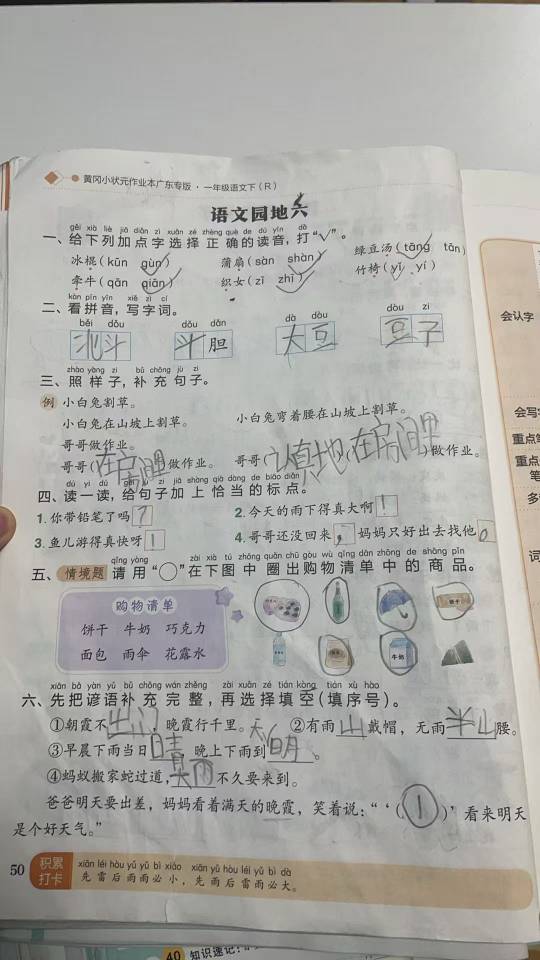 黄冈小状元作业本广东专版·一年级语文下(R)
语文园地六
gěi xià liè jiā diǎn zì xuǎn zé zhèng què de dú yīn dǎ
一、给下列加点字选择正确的读音,打“√”。
冰棍(kūn gùn) 蒲扇(sàn shàn) 绿豆汤(tāng tān)
牵牛(qān qiān) 织女(zī zhī) 竹椅(yǐ yí)
kàn pīn yīn xiě zì cí
二、看拼音,写字词。
běi dǒu dǒu dǎn dà dòu dòu zi
北斗 斗胆 大豆 豆子
zhào yàng zi bǔ chōng jù zi
三、照样子,补充句子。
例 小白兔割草。
小白兔在山坡上割草。 小白兔弯着腰在山坡上割草。
哥哥做作业。
哥哥(在房间里)做作业。 哥哥(认真地)(在房间里)做作业。
dú yi dú gěi jù zi jiā shàng qià dàng de biāo diǎn
四、读一读,给句子加上恰当的标点。
1.你带铅笔了吗? 2.今天的雨下得真大啊!
3.鱼儿游得真快呀! 4.哥哥还没回来,妈妈只好出去找他。
qǐng yòng zài xià tú zhōng quān chū gòu wù qīng dān zhōng de shāng pǐn
五、情境题 请用“○”在下图中圈出购物清单中的商品。
购物清单
饼干 牛奶 巧克力
面包 雨伞 花露水
牛奶
xiān bǎ yàn yǔ bǔ chōng wán zhěng zài xuǎn zé tián kòng tián xù hào
六、先把谚语补充完整,再选择填空(填序号)。
①朝霞不出门,晚霞行千里。 ②有雨山戴帽,无雨半山腰。
③早晨下雨当日晴,晚上下雨到天明。
④蚂蚁搬家蛇过道,大雨不久要来到。
爸爸明天要出差,妈妈看着满天的晚霞,笑着说:“‘(①)’看来明天
是个好天气。”
50
积累打卡
xiān léi hòu yǔ yǔ bì xiǎo xiān yǔ hòu léi yǔ bì dà
先雷后雨雨必小,先雨后雷雨必大。
会认字
会写
重点
重点
笔
多
词
40 知识速记: